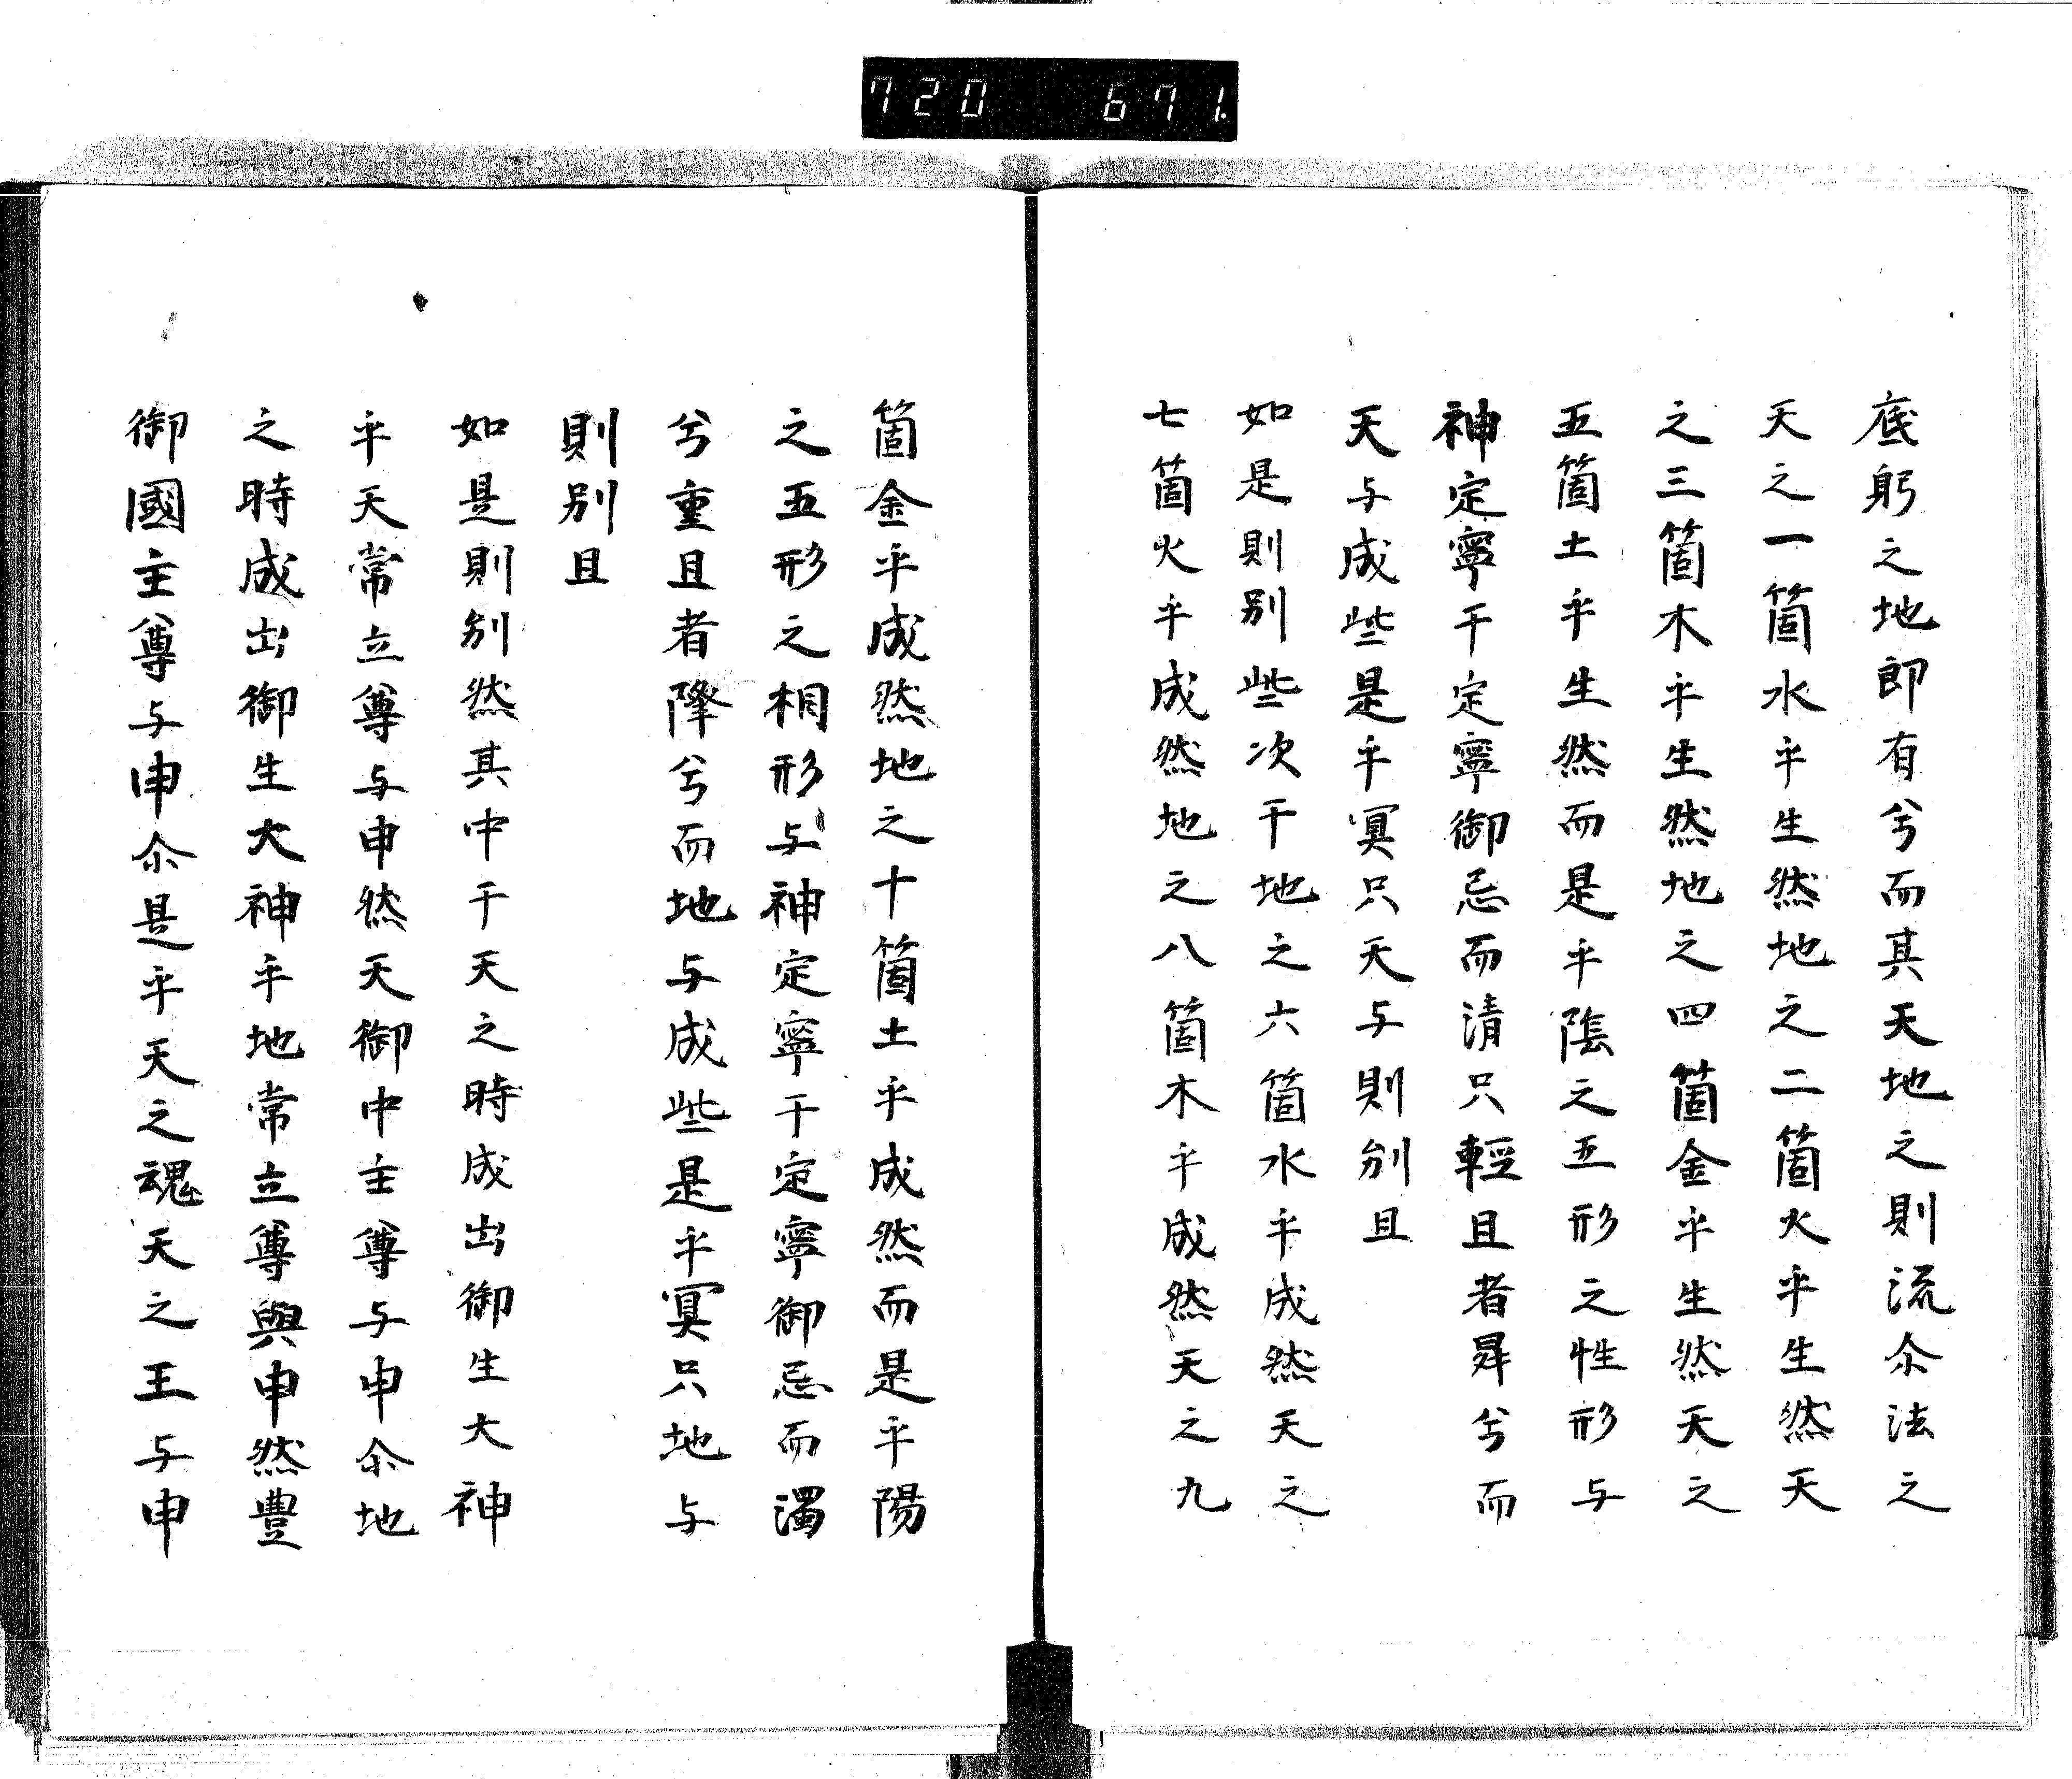 720 671.
底躬之地郎有兮而其天地之則流尒法之
天之一箇水乎生然地之二箇火乎生然天
之三箇木乎生然地之四箇金乎生然天之
五箇土乎生然而是乎陰之五形之性形与
神定寧干定寧御忌而清只輕且者昇兮而
天与成些是乎冥只天与則別且
如是則別些次干地之六箇水乎成然天之
七箇火乎成然地之八箇木乎成然天之九
箇金乎成然地之十箇土乎成然而是乎陽
之五形之相形与神定寧干定寧御忌而濁
兮重且者降兮而地与成些是乎冥只地与
則別且
如是則別然其中干天之時成出御生大神
乎天常立尊与申然天御中主尊与申尒地
之時成出御生大神乎地常立尊與申然豊
御國主尊与申尒是乎天之魂天之王与申